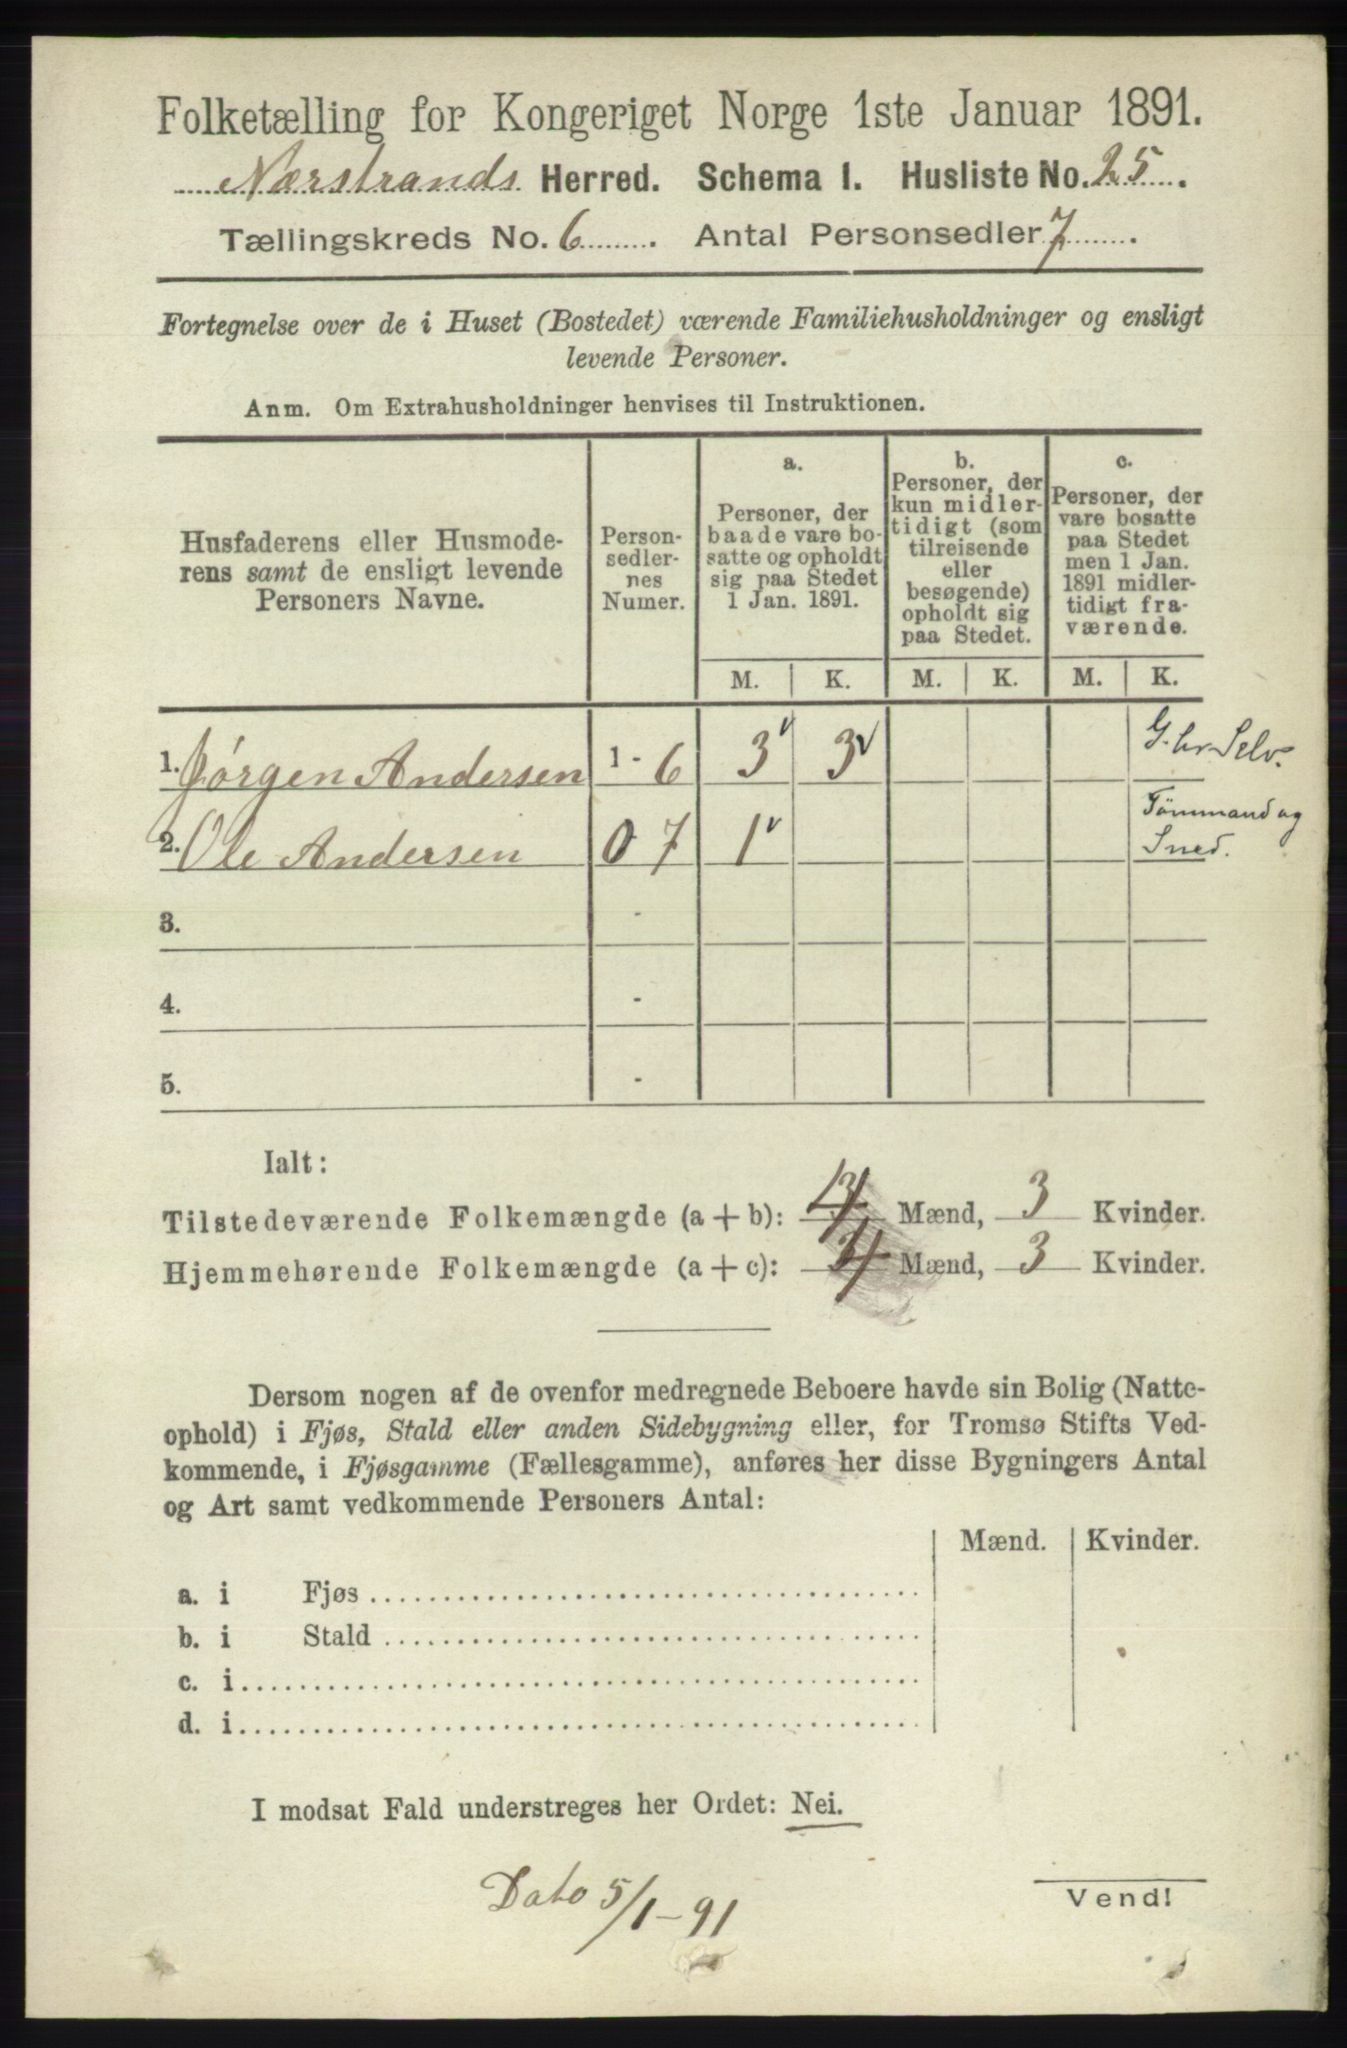 Folketælling for Kongeriget Norge 1ste Januar 1891.
Nærstrands Herred. Schema I. Husliste No. 25.
Tællingskreds No. 6. Antal Personsedler 7.
Fortegnelse over de i Huset (Bostedet) værende Familiehusholdninger og ensligt
levende Personer.
Anm. Om Extrahusholdninger henvises til Instruktionen.
Husfaderens eller Husmode-
rens samt de ensligt levende
Personers Navne.
Person-
sedler-
nes
Numer.
a.
Personer, der
baade vare bo-
satte og opholdt
sig paa Stedet
1 Jan. 1891.
b.
Personer, der
kun midler-
tidigt (som
tilreisende
eller
besøgende)
opholdt sig
paa Stedet.
c.
Personer, der
vare bosatte
paa Stedet
men 1 Jan.
1891 midler-
tidigt fra-
værende.
M. K. M. K. M. K.
1. Jørgen Andersen 1 - 6 3 3 G. br. Selv.
2. Ole Andersen 0 7 1 Tömmand og
Sned.
3. -
4. -
5. -
Ialt:
Tilstedeværende Folkemængde (a + b): 4 Mænd, 3 Kvinder.
Hjemmehørende Folkemængde (a + c): 4 Mænd, 3 Kvinder.
Dersom nogen af de ovenfor medregnede Beboere havde sin Bolig (Natte-
ophold) i Fjøs, Stald eller anden Sidebygning eller, for Tromsø Stifts Ved-
kommende, i Fjøsgamme (Fællesgamme), anføres her disse Bygningers Antal
og Art samt vedkommende Personers Antal:
Mænd. Kvinder.
a. i Fjøs
b. i Stald
c. i
d. i
I modsat Fald understreges her Ordet: Nei.
Dato 5/1-91
Vend!